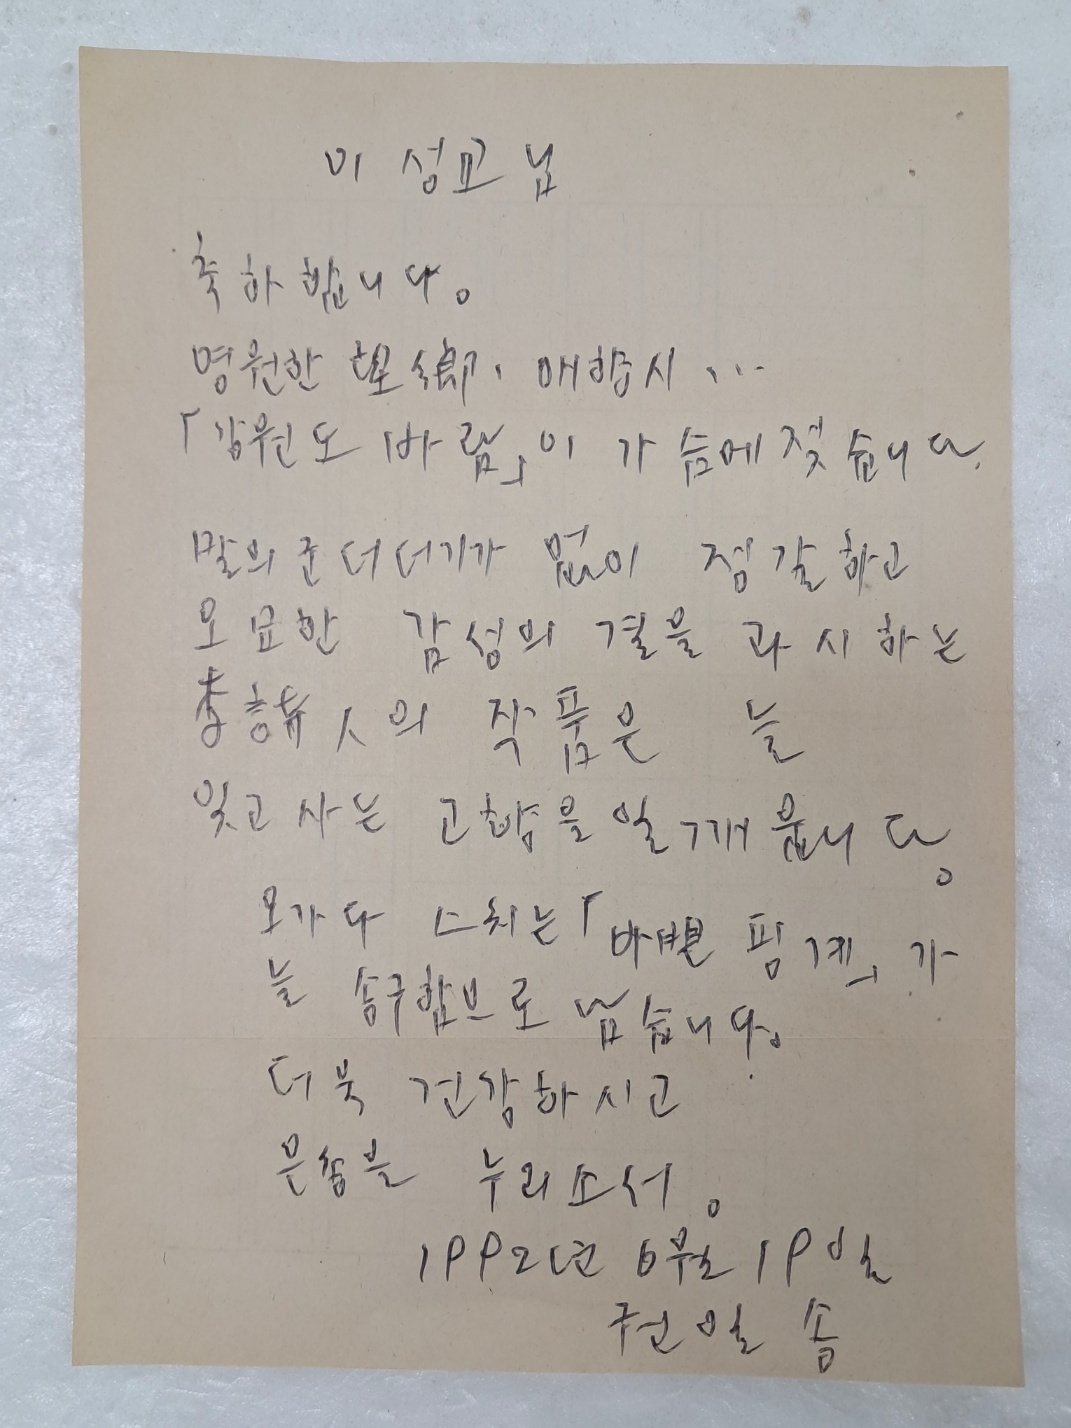 이 성교 님
축하합니다。
영원한 望鄕、애향시、…
「강원도 바람」이 가슴에 젖습니다.
말의 군더더기가 없이 정갈하고
오묘한 감성의 결을 과시하는
李詩人의 작품은 늘
잊고 사는 고향을 일깨웁니다。
오가다 스치는 핑계」가
늘 송구함으로 남습니다。
더욱 건강하시고
은총을 누리소서。
1992년 6월 19일
권일송